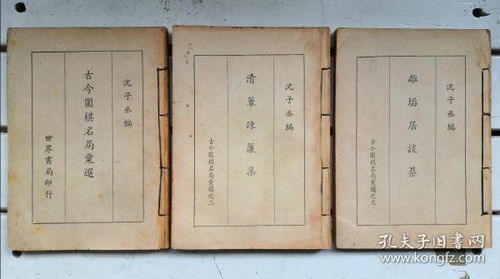 沈子丞編
古今圍棋名局彙選
世界書局印行
沈子丞編
清簟疎簾集
古今圍棋名局彙選之二
沈子丞編
離垢居談棊
古今圍棋名局彙選之三
孔夫子旧书网
www.kongfz.com